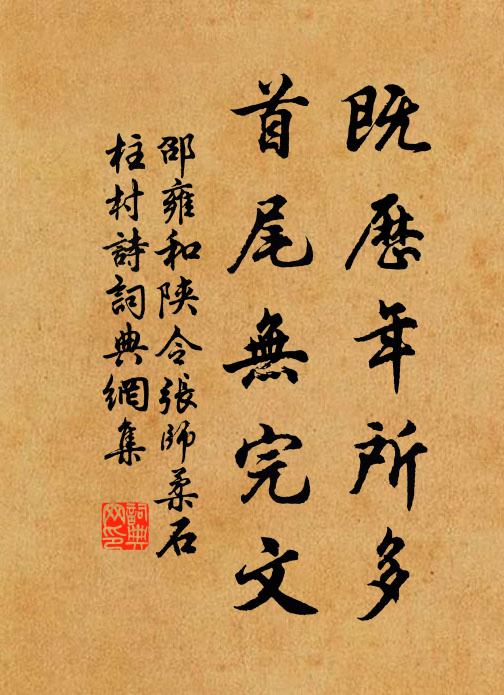 既歷年所多
首尾無完文
邵雍和陝令張師柔石
柱村詩詞典網集
詞典網印